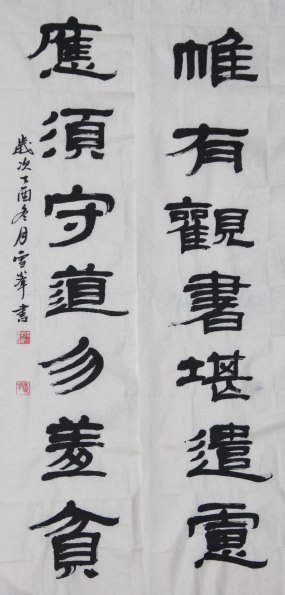 惟有觀書堪遣慮
應須守道勿羞貧
歲次丁酉冬月雪峯書